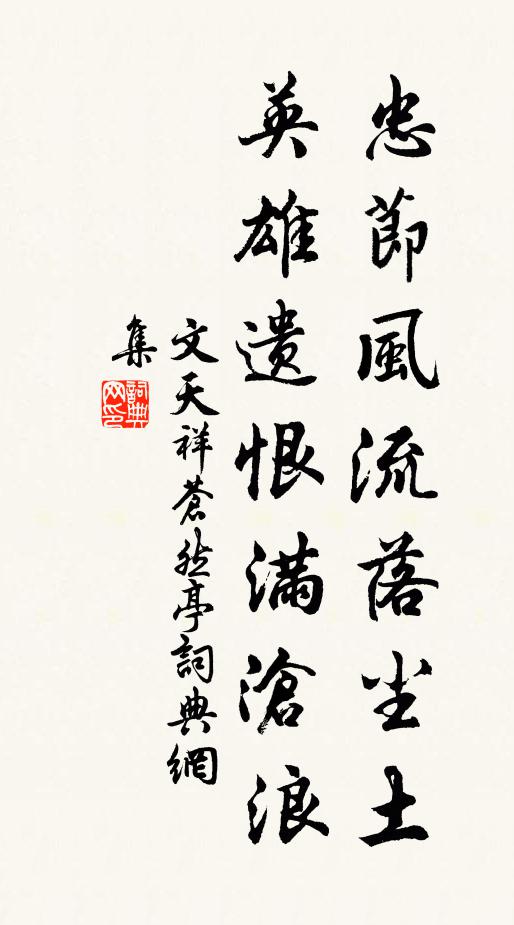 忠節風流落尘土
英雄遺恨滿滄浪
文天祥蒼然亭詞典網
集
詞典网印